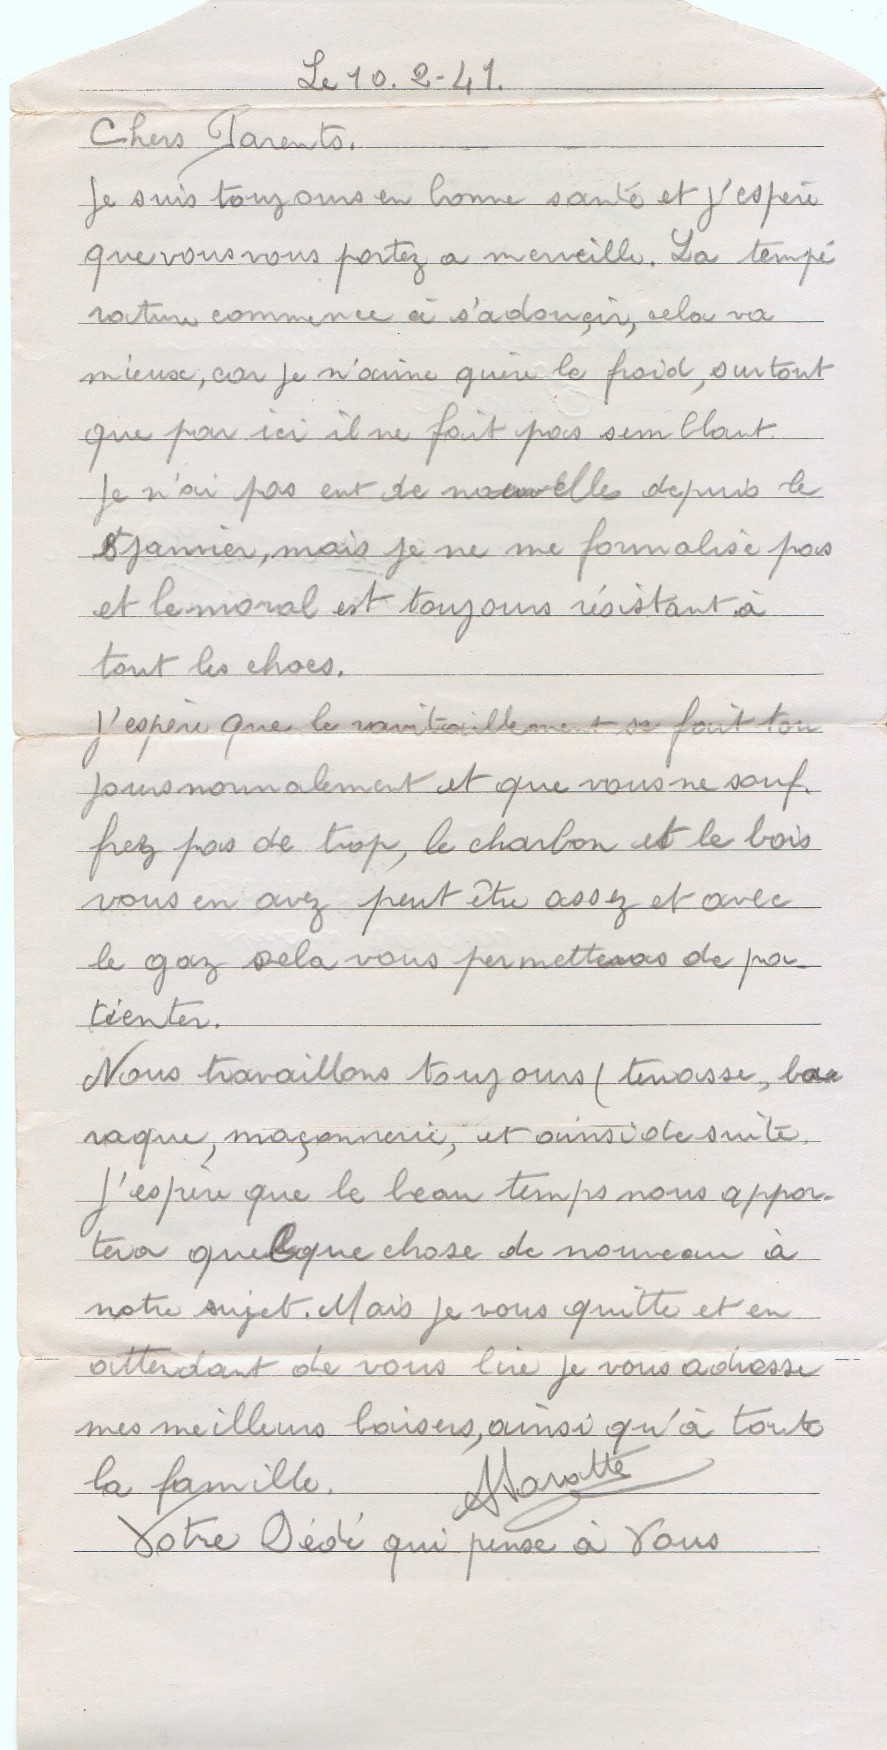 Le 10.2-41.
Chers Parents.
Je suis toujours en bonne santé et j'espère
que vous vous portez a merveille. La tempé
rature commence à s'adouçir, cela va
mieux, car je n'aime guère le froid, surtout
que par ici il ne fait pas semblant.
Je n'ai pas eut de nouvelles depuis le
8 Janvier, mais je ne me formalise pas
et le moral est toujours résistant à
tout les chocs.
J'espère que le ravitaillement se fait tou
jours normalement et que vous ne souf.
frez pas de trop, le charbon et le bois
vous en avez peut être assez et avec
le gaz cela vous permetteras de pa-
tienter.
Nous travaillons toujours ( terrasse, ba
raque, maçonnerie, et ainsi de suite.
J'espère que le beau temps nous appor-
tera quelque chose de nouveau à
notre sujet. Mais je vous quitte et en
attendant de vous lire je vous adresse
mes meilleurs baisers, ainsi qu'à toute
la famille.
Votre Dédé qui pense à Vous